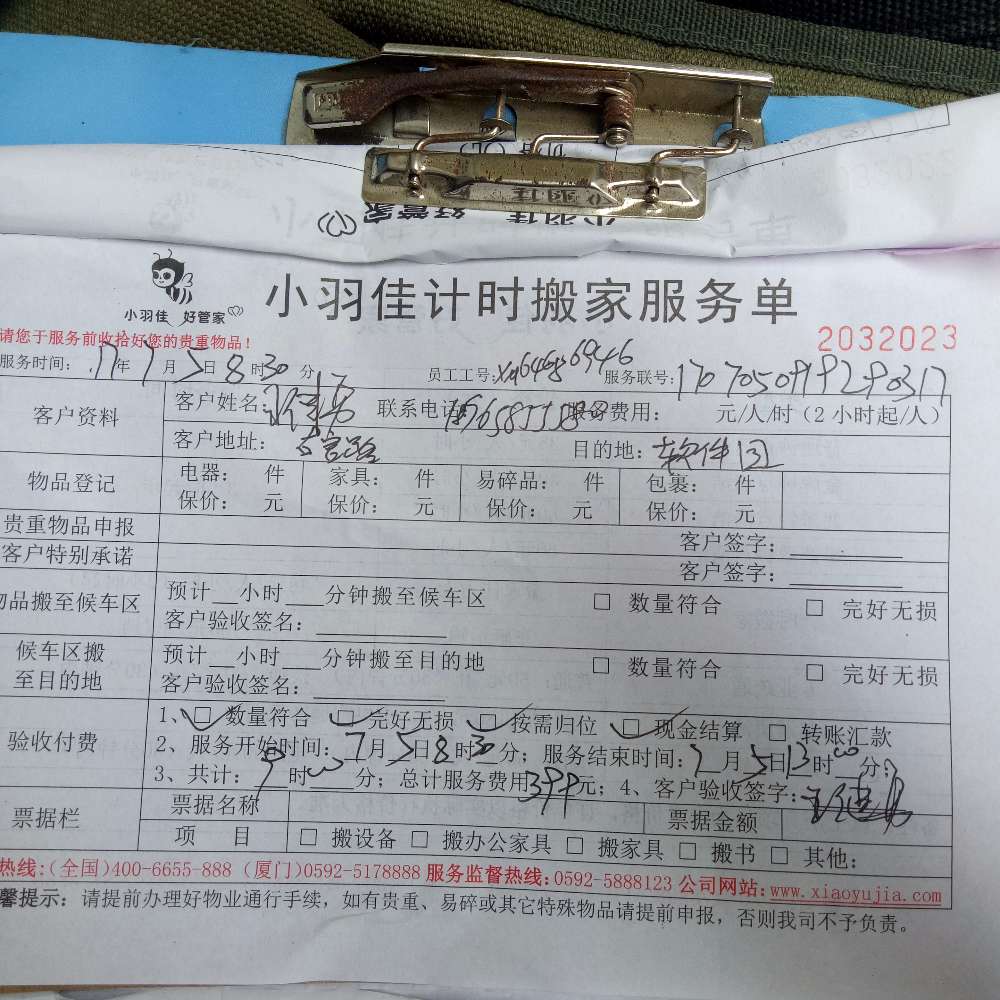 小羽佳 好管家
小羽佳 好管家
小羽佳计时搬家服务单
请您于服务前收拾好您的贵重物品!
2032023
服务时间: 17年7月5日8时30分 员工工号: 服务联号:
客户资料 客户姓名: 联系电话 服务费用: 元/人/时(2小时起/人)
客户地址: 目的地: 软件园
物品登记 电器: 件 家具: 件 易碎品: 件 包裹: 件
保价: 元 保价: 元 保价: 元 保价: 元
贵重物品申报 客户签字:
客户特别承诺 客户签字:
物品搬至候车区 预计__小时___分钟搬至候车区 □ 数量符合 □ 完好无损
客户验收签名:
候车区搬至目的地 预计__小时___分钟搬至目的地 □ 数量符合 □ 完好无损
客户验收签名:
验收付费 1、□ 数量符合 □ 完好无损 □ 按需归位 □ 现金结算 □ 转账汇款
2、服务开始时间: 7月5日8时30分; 服务结束时间: 7月5日13时00分;
3、共计: 时 分; 总计服务费用 元; 4、客户验收签字:
票据栏 票据名称 票据金额
项 目 □ 搬设备 □ 搬办公家具 □ 搬家具 □ 搬书 □ 其他:
热线:(全国)400-6655-888 (厦门)0592-5178888 服务监督热线:0592-5888123 公司网站:www.xiaoyujia.com
馨提示: 请提前办理好物业通行手续, 如有贵重、易碎或其它特殊物品请提前申报, 否则我司不予负责。